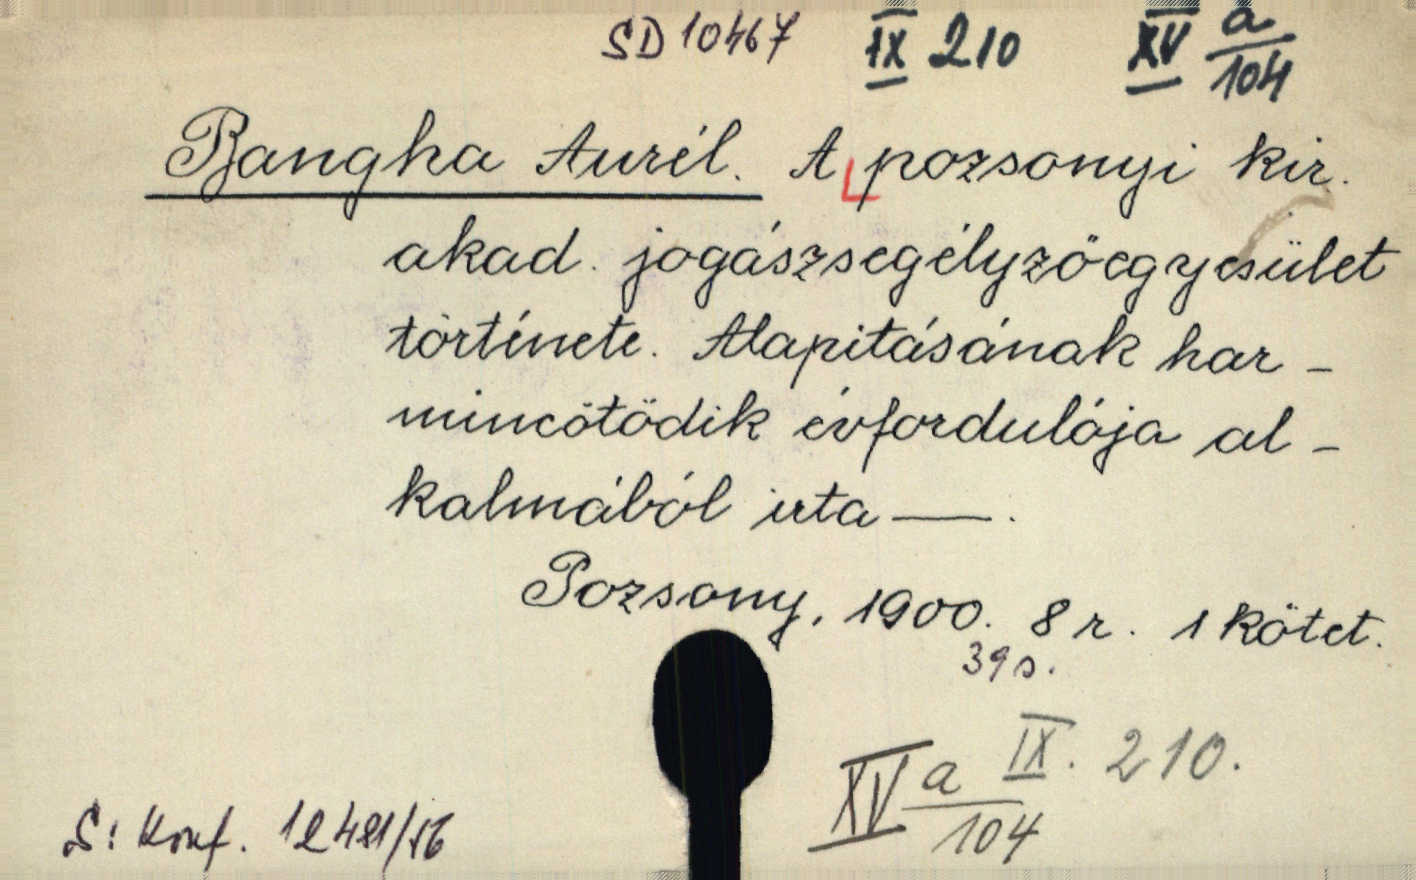 SD 10467 IX 210 XV a/104
Bangha Aurél. A pozsonyi kir.
akad. jogászsegélyzőegyesület
története. Alapitásának har-
mincötödik évfordulója al-
kalmából irta —.
Pozsony, 1900. 8 r. 1 kötet.
39 s.
XV a/104 IX. 210.
S: Konf. 12481/56